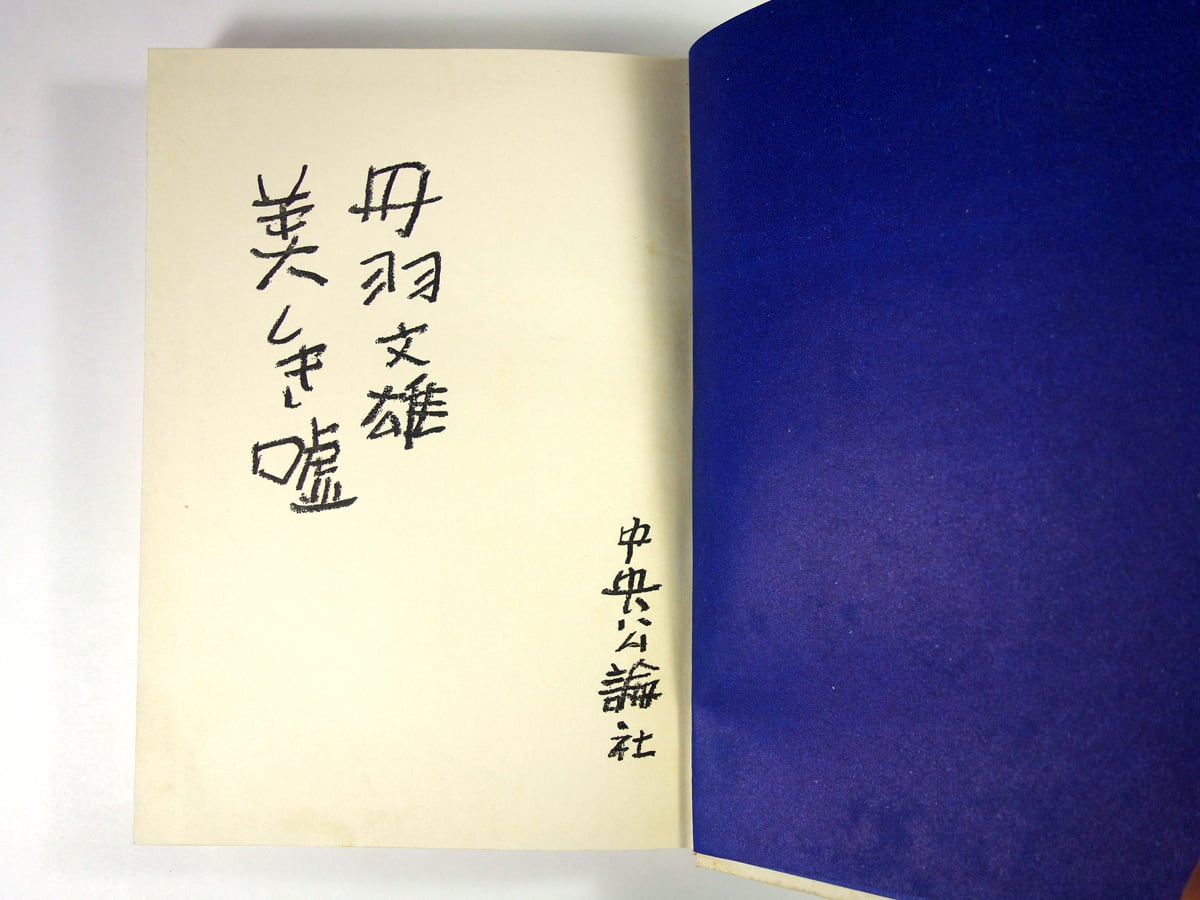 中央公論社
丹羽文雄
美しき嘘